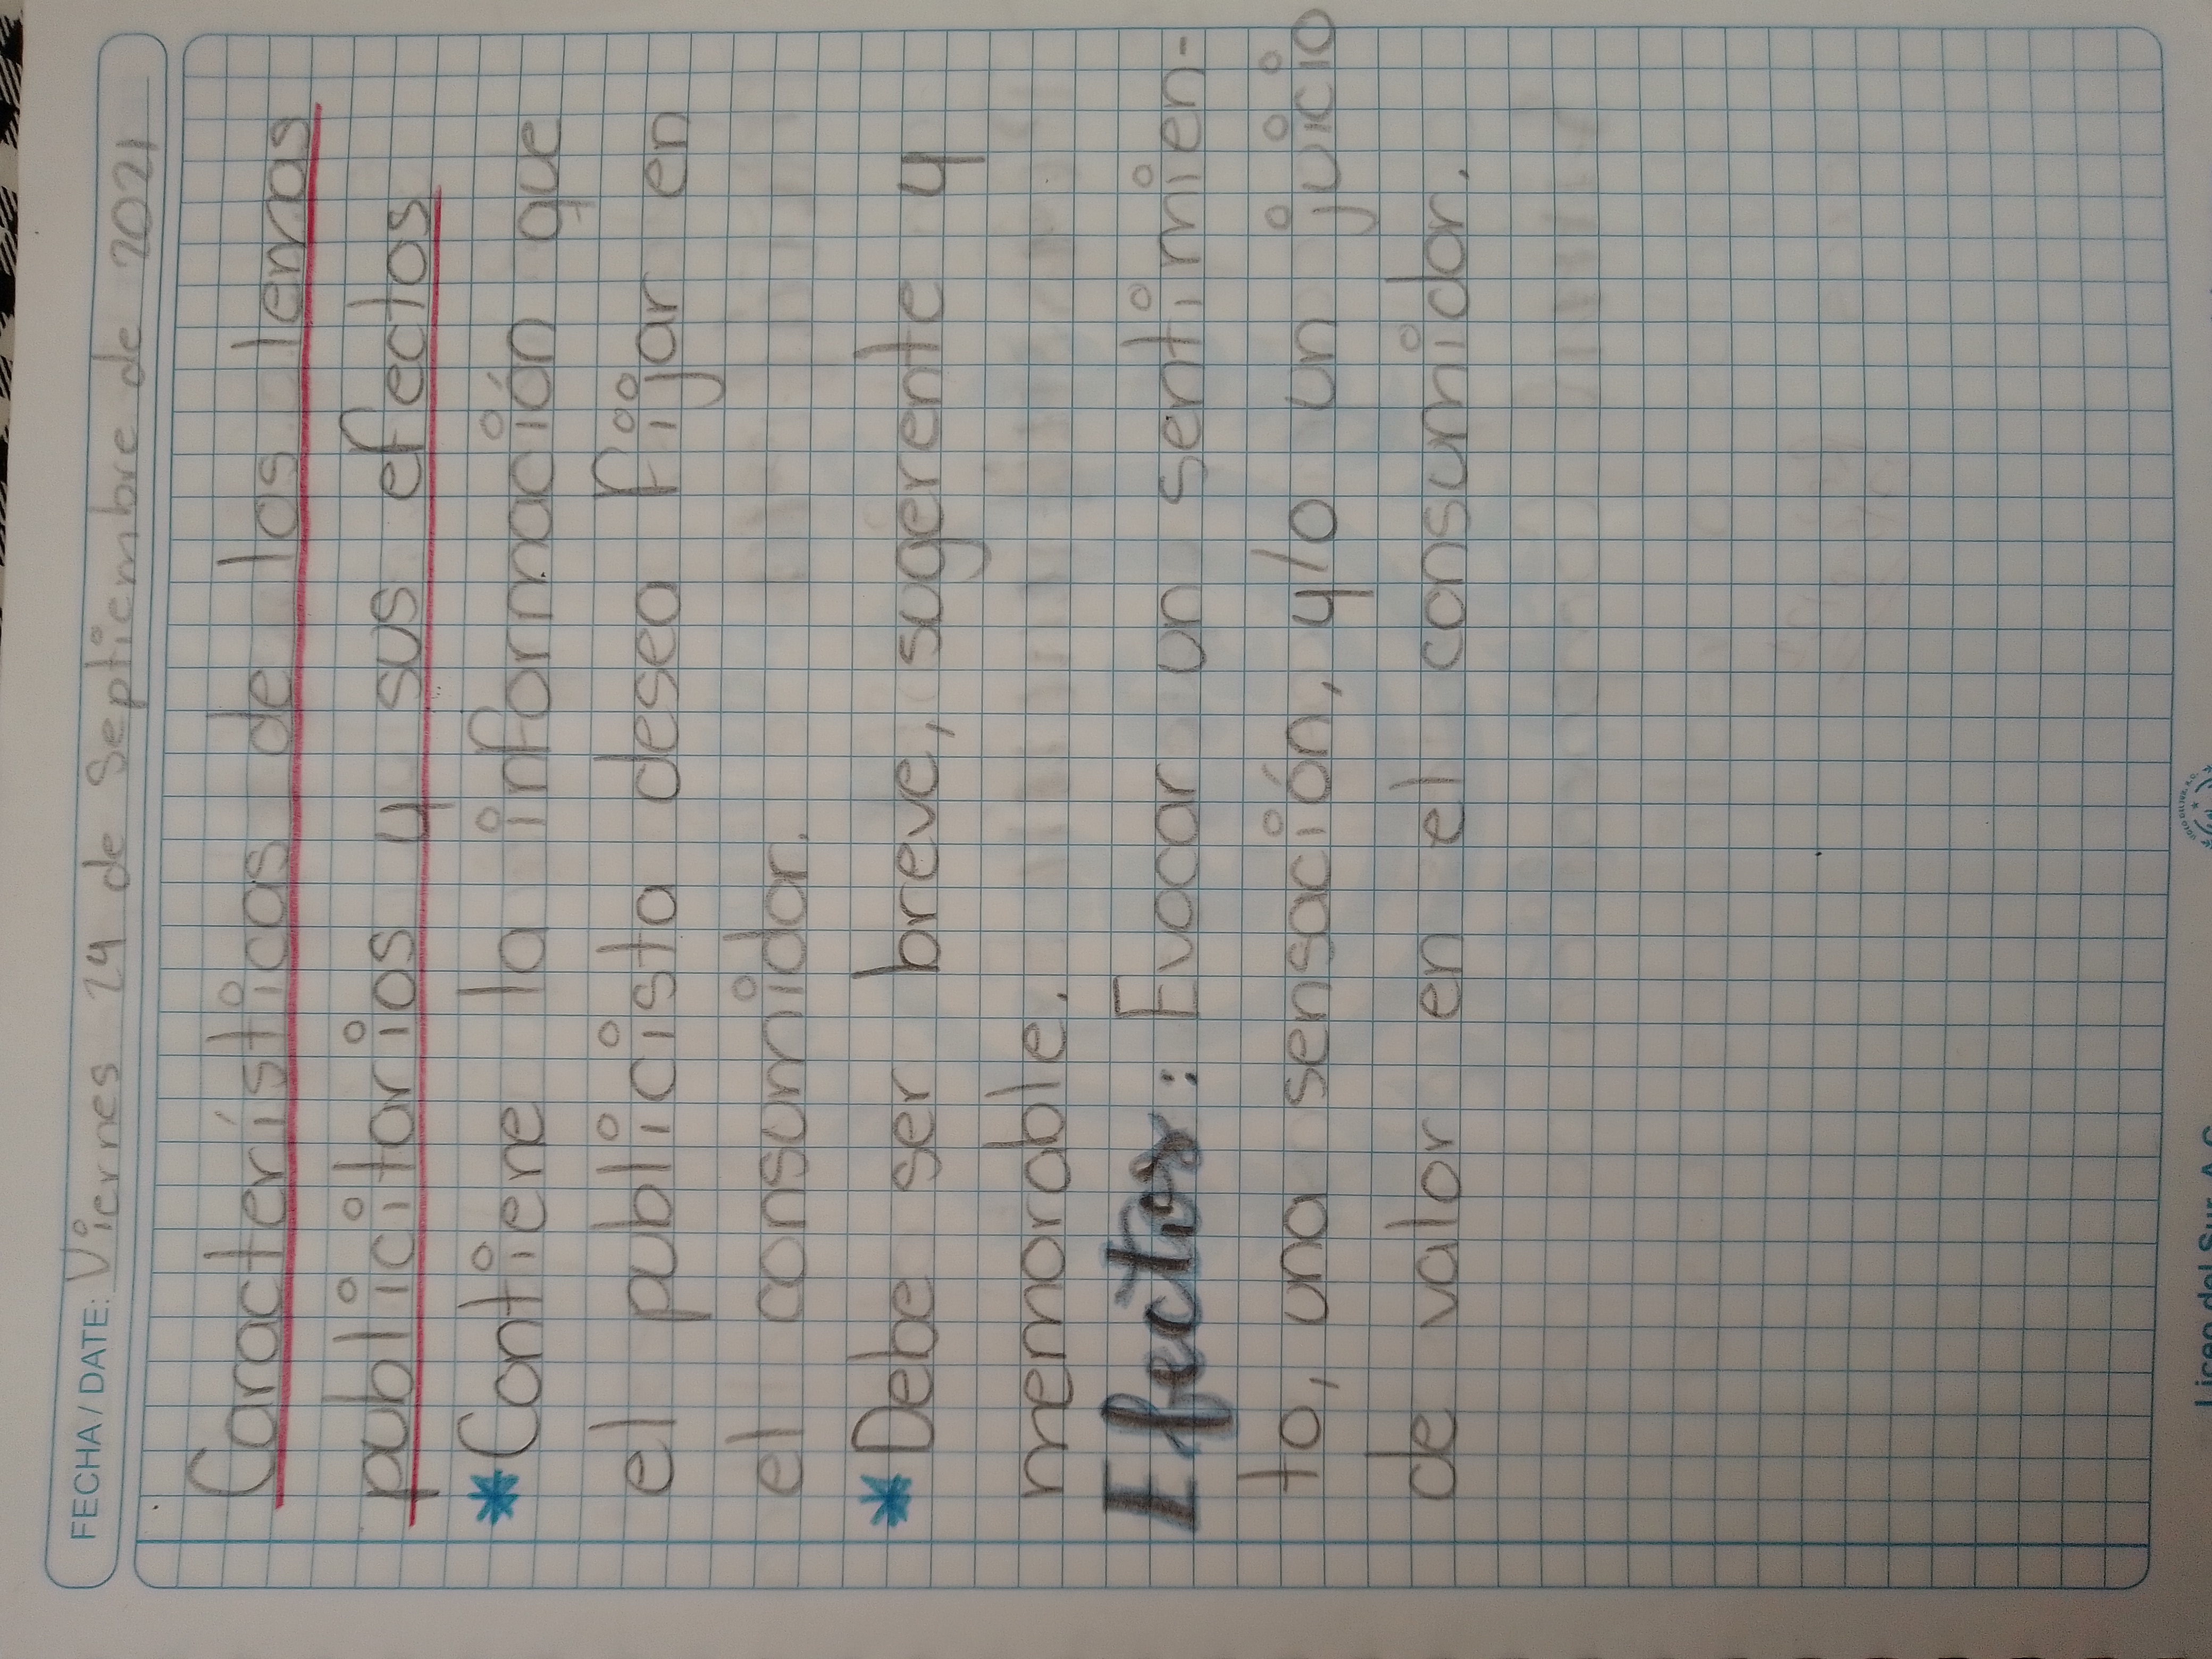 FECHA / DATE: Viernes 24 de Septiembre de 2021
Características de los lemas
publicitarios y sus efectos
*Contiene la información que
el publicista desea fijar en
el consumidor.
*Debe ser breve, sugerente y
memorable.
Efectos: Evocar un sentimien-
to, una sensación, y/o un juicio
de valor en el consumidor.
Liceo del Sur, A.C.